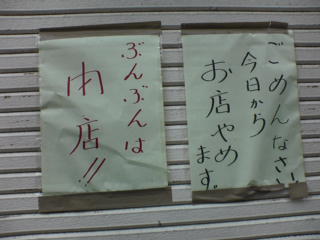 ごめんなさい
今日から
お店やめ
ます。
ぶんぶんは
閉店!!